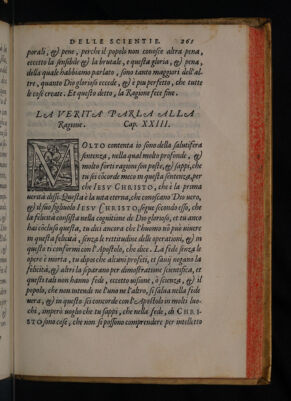 DELLE SCIENTIE. 265
porali, & pene, perche il popolo non conosce altra pena,
eccetto la sensibile & la brutale, e questa gloria, & pena,
della quale habbiamo parlato, sono tanto maggiori dell'al-
tre, quanto Dio glorioso eccede, & è piu perfetto, che tutte
le cose create. Et questo detto, la Ragione fece fine.
LA VERITA PARLA ALLA
Ragione. Cap. XXIII.
MOLTO contenta io sono della salutifera
sentenza, nella qual molto profonde, &
molto forti ragioni son poste, & sappi, che
tu sei cōcorde meco in questa sentenza, per
che IESV CHRISTO, che è la prima
uerità disse. Questa è la uita eterna, che conoscano Dio uero,
& il suo figliuolo IESV CHRISTO, seque stando esse, che
la felicità consista nella cognitione di Dio glorioso, et tu anco
has cōcluso questa, tu dici ancora che l'huomo nō può uiuere
in questa felicità, senza le rettitudine delle operationi, & in
questo ti conformi con l'Apostolo, che dice. La fede senza le
opere è morta, tu dipoi che alcuni profeti, et sauij negano la
felicità, & altri la separano per dimostratione scientifica, et
questi tali non hanno fede, eccetto uisione, ò scienza, & il
popolo, che non intende ne l'uno ne l'altro, si salua nella fede
uera, & in questo sei concorde con l'Apostolo in molti luo-
chi, imperò uoglio che tu sappi, che nella fede, di CHRI-
STO sono cose, che non si possono comprendere per intelletto